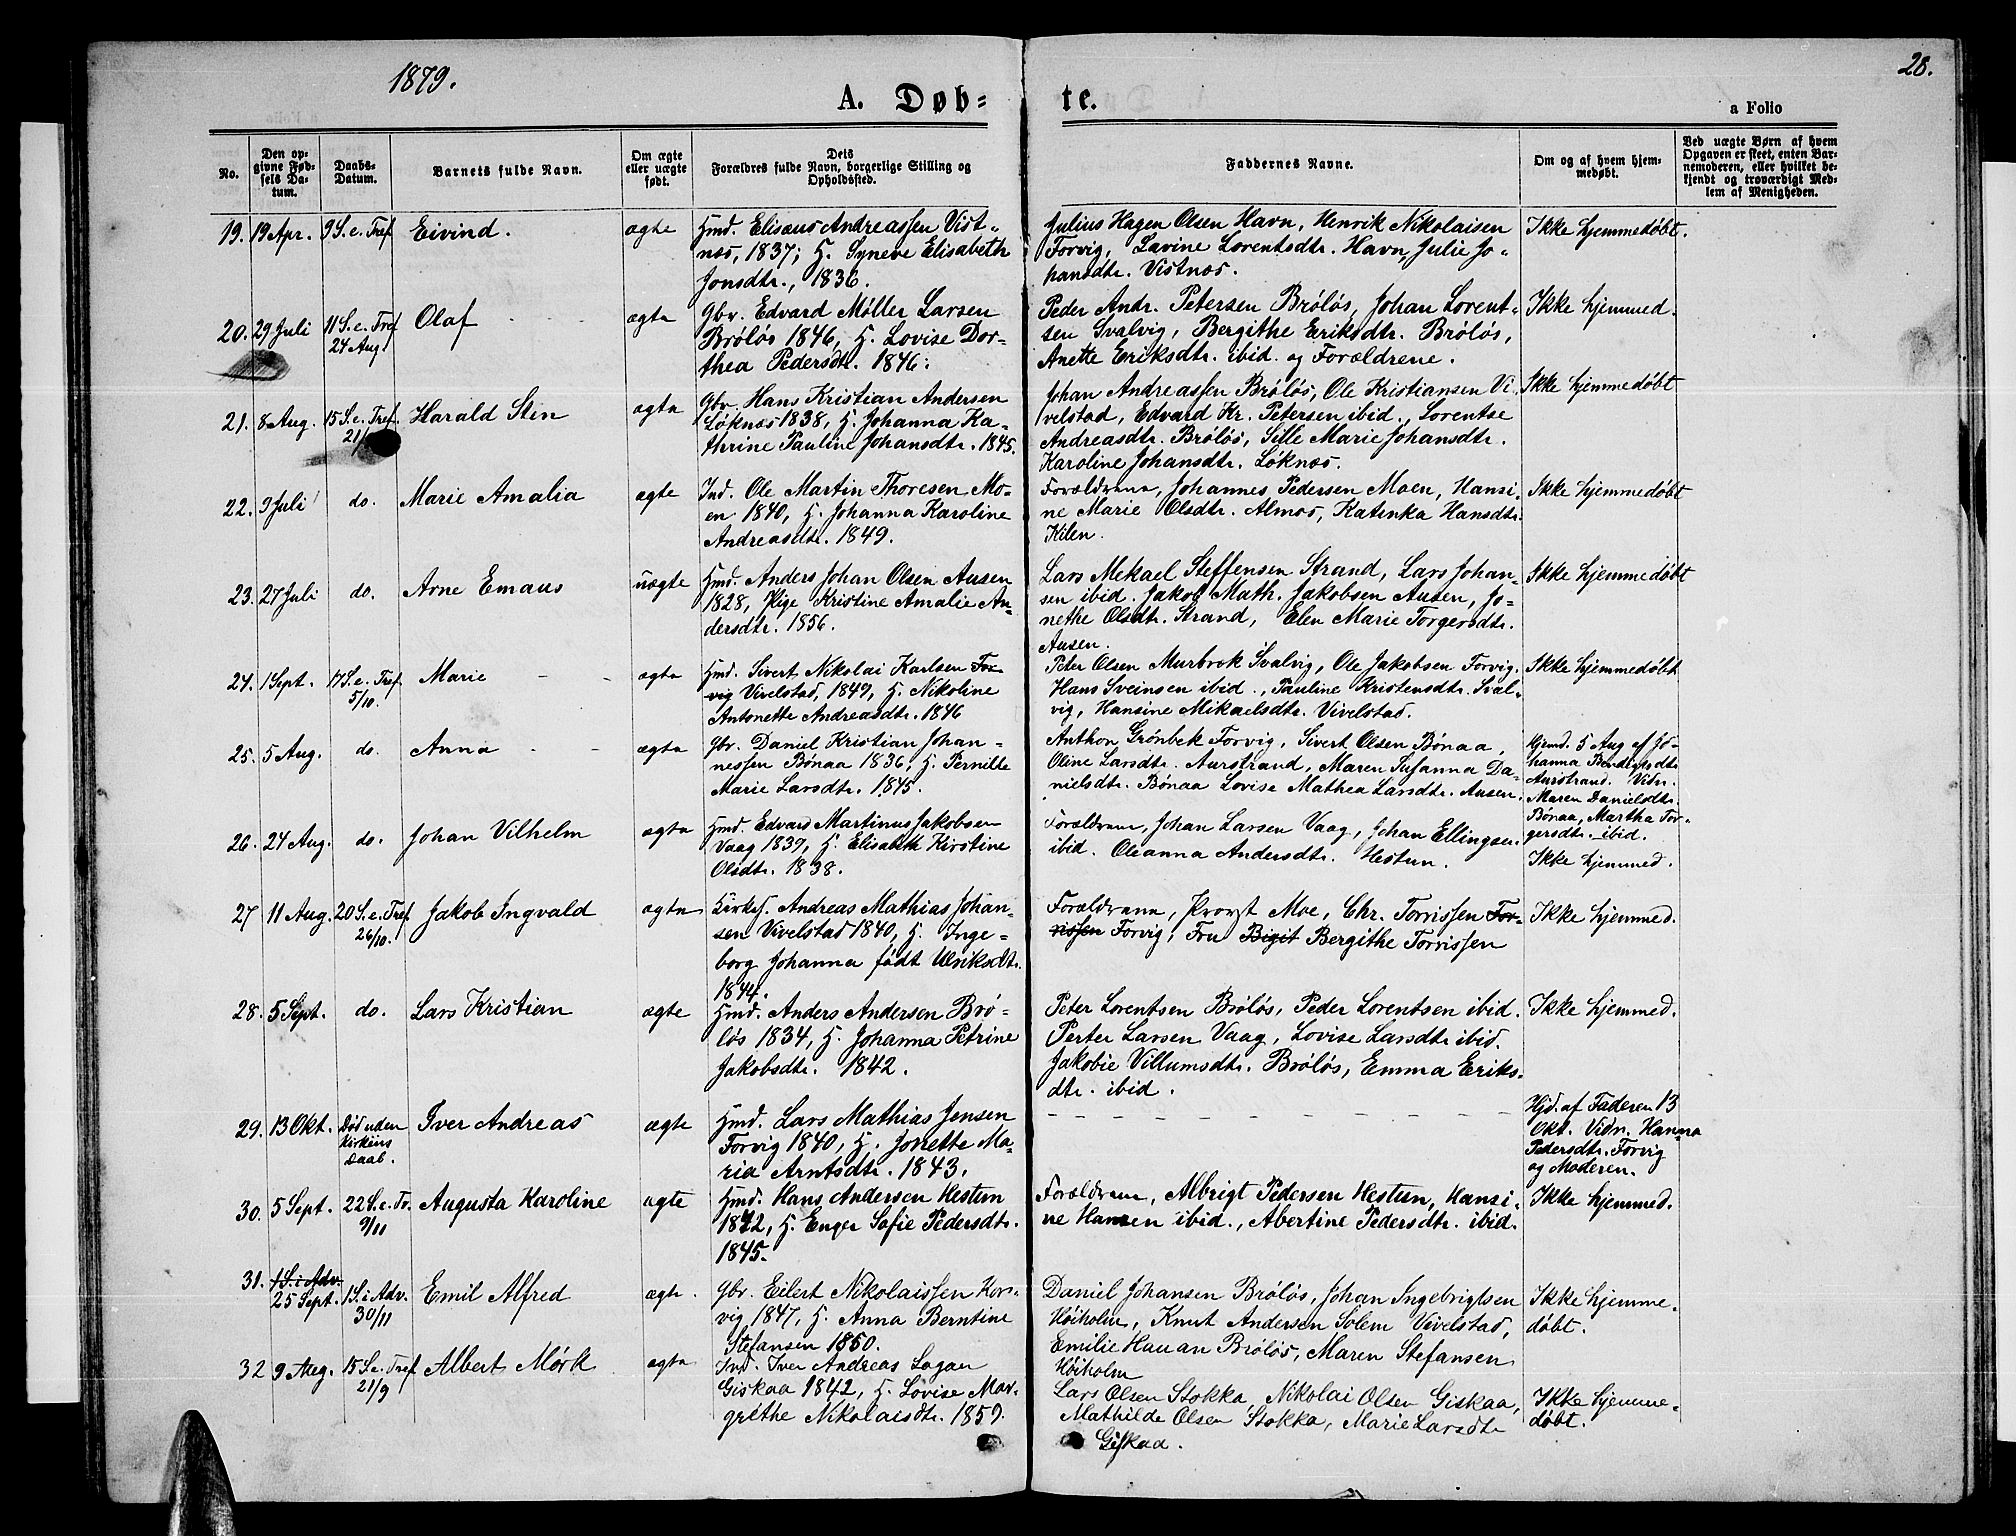 1879.
28.
A. Døb=
te.
a Folio
No.
Den op=
givne Fød=
sels Da=
tum.
Daabs=
Datum.
Barnets fulde Navn.
Om ægte
eller uægte
født.
Dets
Forældres fulde Navn, borgerlige Stilling og
Opholdssted.
Faddernes Navne.
Om og af hvem hjem=
medøbt.
Ved uægte Børn af hvem
Opgaven er skeet, enten Bar=
nemoderen, eller hvilket be=
kjendt og troværdigt Med=
lem af Menigheden.
19. 19 Apr. 9 S. e. Tref. Eivind. ægte
Hmd. Elisæus Andreassen Vist-
næs, 1837; H. Syneve Elisabeth
Jonsdtr., 1836.
Julius Hagen Olsen Havn, Henrik Nikolaisen
Forvig, Lavine Lorentsdtr. Havn, Julie Jo-
hansdtr. Vistnæs.
Ikke hjemmedøbt.
20. 29 Juli 11 S. e. Tref
24 Aug.
Olaf ægte
Gbr. Edvard Møller Larsen
Bröløs 1846, H. Lovise Dor-
thea Pedersdtr. 1846.
Peder Andr. Petersen Bröløs, Johan Lorent-
sen Svalvig, Bergithe Eriksdtr. Bröløs,
Anette Eriksdtr. ibid. og Forældrene.
Ikke hjemmed.
21. 8 Aug. 15 S. e. Tref.
21/
Harald Stin ægte
Gbr. Hans Kristian Andersen
Løknæs 1838, H. Johanna Ka-
thrine Pauline Johansdtr. 1845.
Johan Andreassen Bröløs, Ole Kristiansen Vi-
velstad, Edvard Kr. Petersen ibid., Lorentse
Andreasdtr. Bröløs, Sille Marie Johansdtr.
Karoline Johansdtr. Løknæs.
Ikke hjemmedøbt
22. 9 Juli do. Marie Amalia ægte
Ind. Ole Martin Thoresen Mo-
en 1840, H. Johanna Karoline
Andreasdtr. 1849.
Forældrene, Johannes Pedersen Moen, Hansi-
ne Marie Olsdtr. Almos, Katinka Hansdtr.
Kilen.
Ikke hjemmedøbt
23. 27 Juli do. Arne Emaus uægte
Hmd. Anders Johan Olsen Ausen
1828, Pige Kristine Amalie An-
dersdtr. 1856.
Lars Mekael Steffensen Strand, Lars Johan-
sen ibid. Jakob Math. Jakobsen Ausen, Jo-
nethe Olsdtr. Strand, Elen Marie Torgersdtr.
Ausen.
Ikke hjemmedøbt
24. 1 Sept. 17 S. e. Tref.
5/10.
Marie ægte
Hmd. Sivert Nikolai Karlsen For-
vig Vivelstad, 1849, H. Nikoline
Antonette Andreasdtr. 1846
Peter Olsen Murbrek Svalvig, Ole Jakobsen Forvig,
Hans Sveinsen ibid., Pauline Kristensdtr. Sval-
vig, Hansine Mikaelsdtr. Vivelstad.
Ikke hjemmedøbt
25. 5 Aug. do. Anna ægte
Gbr. Daniel Kristian Johan-
nessen Bønaa 1836, H. Pernille
Marie Larsdtr. 1845.
Anthon Grönbek Forvig, Sivert Olsen Bønaa,
Oline Larsdtr. Aurstrand, Maren Susanna Da-
nielsdtr. Bønaa Lovise Mathea Larsdtr. Ausen.
Hjmd. 5 Aug af Jo-
hanna Bendigtsdtr
Aurstrand. Vidn.
Maren Danielsdtr.
Bönaa, Martha Tor-
gersdtr. ibid.
26. 24 Aug. do. Johan Vilhelm ægte
Hmd. Edvard Martinus Jakobsen
Vaag 1839, H. Elisabeth Kirstine
Olsdtr. 1838.
Forældrene, Johan Larsen Vaag, Johan Ellingsen
ibid. Oleanna Andersdtr. Hestun.
Ikke hjemmed.
27 11 Aug. 20 S. e. Tref
26/10.
Jakob Ingvald ægte
Kirkes. Andreas Mathias Johan-
sen Vivelstad 1840, H. Inge-
borg Johanna født Ulriksdtr.
1844.
Forældrene, Provst Moe, Chr. Torrissen Tor-
rissen Forvig, Fru Bigit Bergithe Torrissen
Ikke hjemmed.
28. 5 Sept. do. Lars Kristian ægte
Hmd. Anders Andersen Brö-
løs 1834, H. Johanna Petrine
Jakobsdtr. 1842.
Peter Lorentsen Bröløs, Peder Lorentsen ibid.
Perter Larsen Vaag, Lovise Larsdtr ibid.
Jakobie Villumsdtr. Bröløs, Emma Eriks-
dtr. ibid.
Ikke hjemmed.
29. 13 Okt. Död uden
Kirkens
Daab.
Iver Andreas ægte
Hmd. Lars Mathias Jensen
Forvig 1840, H. Jonette Ma-
ria Arntsdtr. 1843.
Hjd. af Faderen 13
Okt. Vidn. Hanna
Pedersdtr. Forvig
og Moderen.
30. 5 Sept. 22 S. e. Tr.
9/11
Augusta Karoline ægte
Hmd. Hans Andersen Hestun
1842, H. Enger Sofie Pedersdtr.
1845.
Forældrene, Albrigt Pedersen Hestun, Hansi-
ne Hansen ibid., Abertine Pedersdtr. ibid.
Ikke hjemmed.
31. 1 S. i Adv.
25 Sept. 1 S. i Adv.
30/11
Emil Alfred ægte.
Gbr. Eilert Nikolaissen Kor-
vig 1847, H. Anna Berntine
Stefansen 1850.
Daniel Johansen Bröløs, Johan Ingebrigtsen
Høiholm, Knut Andersen Solem Vivelstad,
Emilie Hauan Bröløs, Maren Stefansen
Høiholm
Ikke hjemme-
døbt.
32 9 Aug. 15 S. e. Tref
21/9
Albert Mörk ægte
Ind. Iver Andreas Logan
Giskaa 1842, H. Lovise Mar-
grethe Nikolaisdtr. 1859.
Lars Olsen Stokka, Nikolai Olsen Giskaa,
Mathilde Olsen Stokka, Marie Larsdtr
Giskaa.
Ikke hjemme-
døbt.